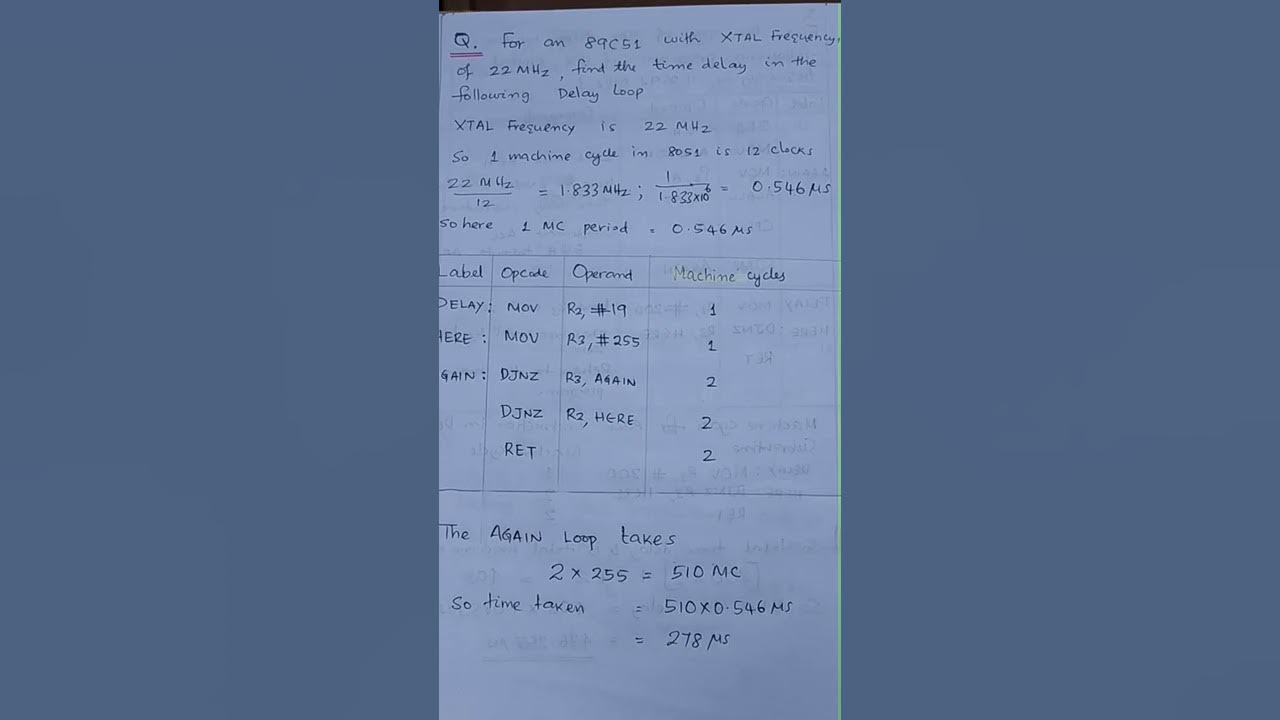 Q. For an 89C51 with XTAL Frequency,
of 22 MHz, find the time delay in the
following Delay Loop
XTAL Frequency is 22 MHz
So 1 machine cycle in 8051 is 12 clocks
22 MHz / 12 = 1.833 MHz ; 1 / 1.833×10⁶ = 0.546 µs
So here 1 MC period = 0.546 µs
Label Opcode Operand Machine cycles
DELAY: MOV R2, #19 1
HERE: MOV R3, #255 1
AGAIN: DJNZ R3, AGAIN 2
DJNZ R2, HERE 2
RET 2
The AGAIN Loop takes
2 × 255 = 510 MC
So time taken = 510 × 0.546 µs
= 278 µs